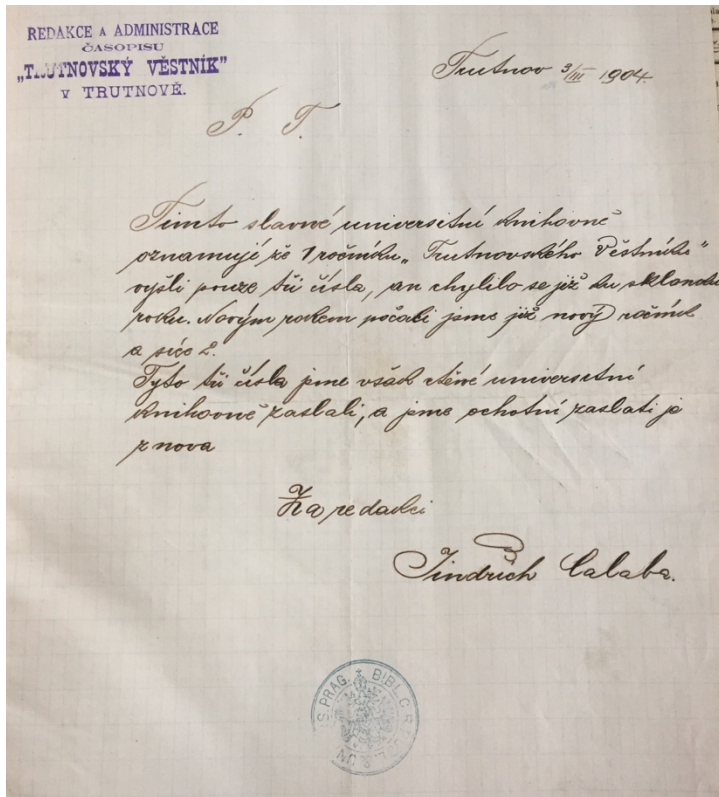 REDAKCE A ADMINISTRACE
ČASOPISU
„TRUTNOVSKÝ VĚSTNÍK”
V TRUTNOVĚ.
Trutnov 3/III 1904.
P. T.
Tímto slavné universitní knihovně
oznamuji že 1 ročníku „Trutnovského Věstníku”
vyšli pouze tři čísla, an chylilo se již ku sklonku
roku. Novým rokem počali jsme již nový ročník
a sice 2.
Tyto tři čísla jsme však ctěné universitní
knihovně zaslali, a jsme ochotni zaslati je
znova
Za redakci
Jindřich Calaba.
S. PRAG. BIBL. C. R.